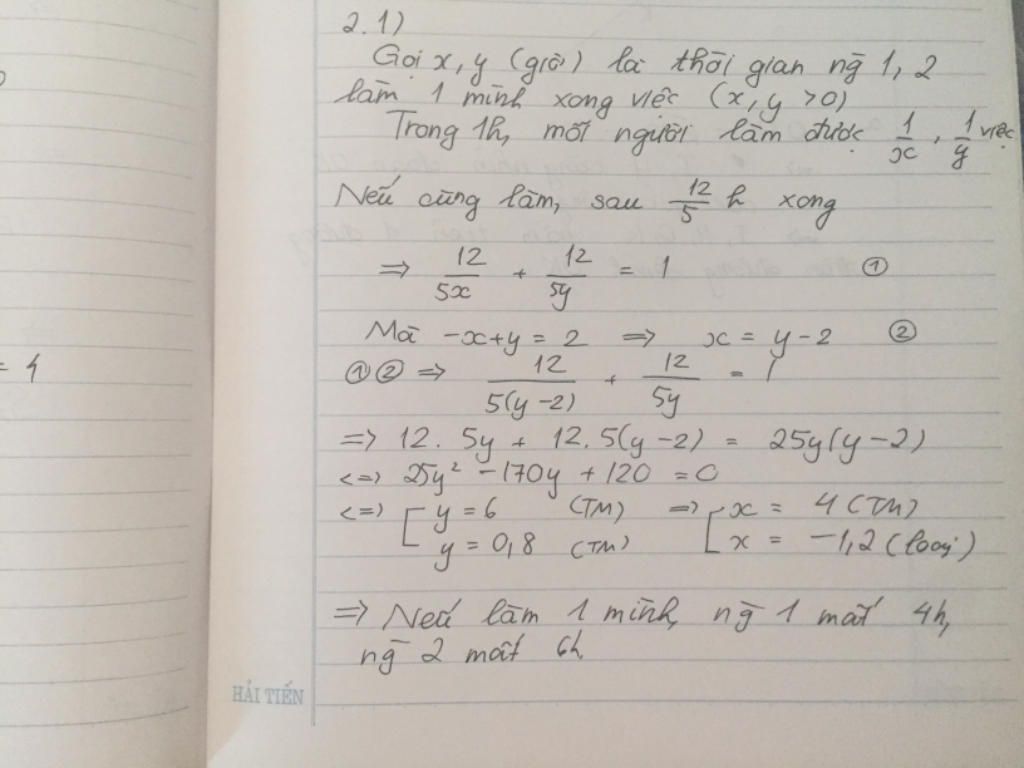 = 4
2.1)
Gọi x, y (giờ) là thời gian ng̀ 1, 2
làm 1 mình xong việc (x, y > 0)
Trong 1h, mỗi người làm được 1/x, 1/y việc
Nếu cùng làm, sau 12/5 h xong
⇒ 12/5x + 12/5y = 1 ①
Mà -x+y = 2 ⇒ x = y - 2 ②
①② ⇒ 12/5(y-2) + 12/5y = 1
⇒ 12. 5y + 12.5(y-2) = 25y(y-2)
<=> 25y² - 170y + 120 = 0
<=> [ y = 6 (TM) ⇒ [ x = 4 (TM)
y = 0,8 (TM) x = -1,2 (loại)
⇒ Nếu làm 1 mình, ng̀ 1 mất 4h,
ng̀ 2 mất 6h
HẢI TIẾN